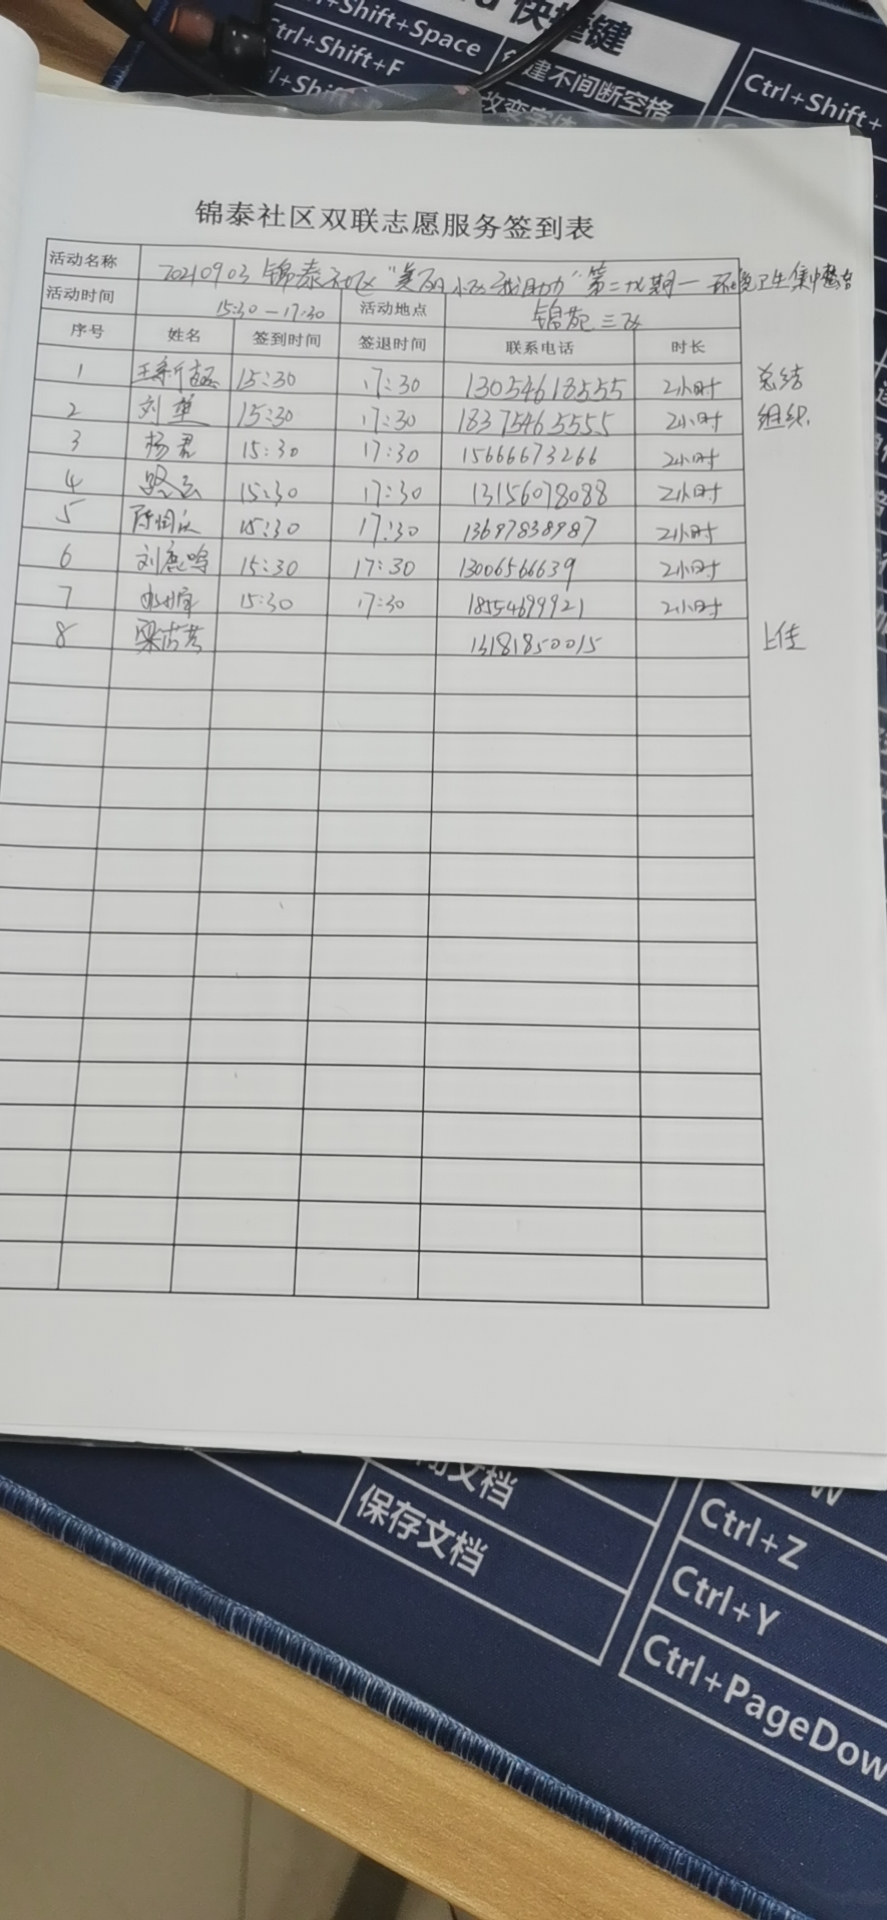 快捷键
Shift+Space
建不间断空格
Ctrl+Shift+F
改变字体
Ctrl+Shift+
锦泰社区双联志愿服务签到表
活动名称 20210903 锦泰社区"美丽小区我助力"第二十九期—环境卫生集中整治
活动时间 15:30—17:30 活动地点 锦苑三区
序号 姓名 签到时间 签退时间 联系电话 时长
1 15:30 17:30 13054618555 2小时 总结
2 刘 15:30 17:30 18375465555 2小时 组织
3 杨君 15:30 17:30 15666673266 2小时
4 15:30 17:30 13156078088 2小时
5 15:30 17:30 13697838987 2小时
6 刘鹿鸣 15:30 17:30 13006566639 2小时
7 15:30 17:30 18554699921 2小时
8 13181850015 上传
文档
保存文档
W
Ctrl+Z
Ctrl+Y
Ctrl+PageDow